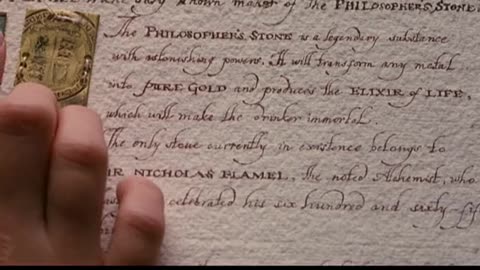 known maker of the PHILOSOPHER'S STONE
The PHILOSOPHER'S STONE is a legendary substance
with astonishing powers. It will transform any metal
into PURE GOLD and produces the ELIXIR of LIFE,
which will make the drinker immortal.
The only stone currently in existence belongs to
NICHOLAS FLAMEL, the noted Alchemist, who
celebrated his six hundred and sixty-fif